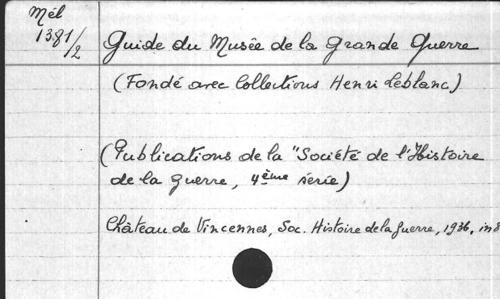 Mél
1381/2
Guide du Musée de la Grande Guerre
(Fondé avec Collections Henri Leblanc)
(Publications de la "Société de l'Histoire
de la Guerre, 4ème série)
Château de Vincennes, Soc. Histoire de la Guerre, 1936, in 8